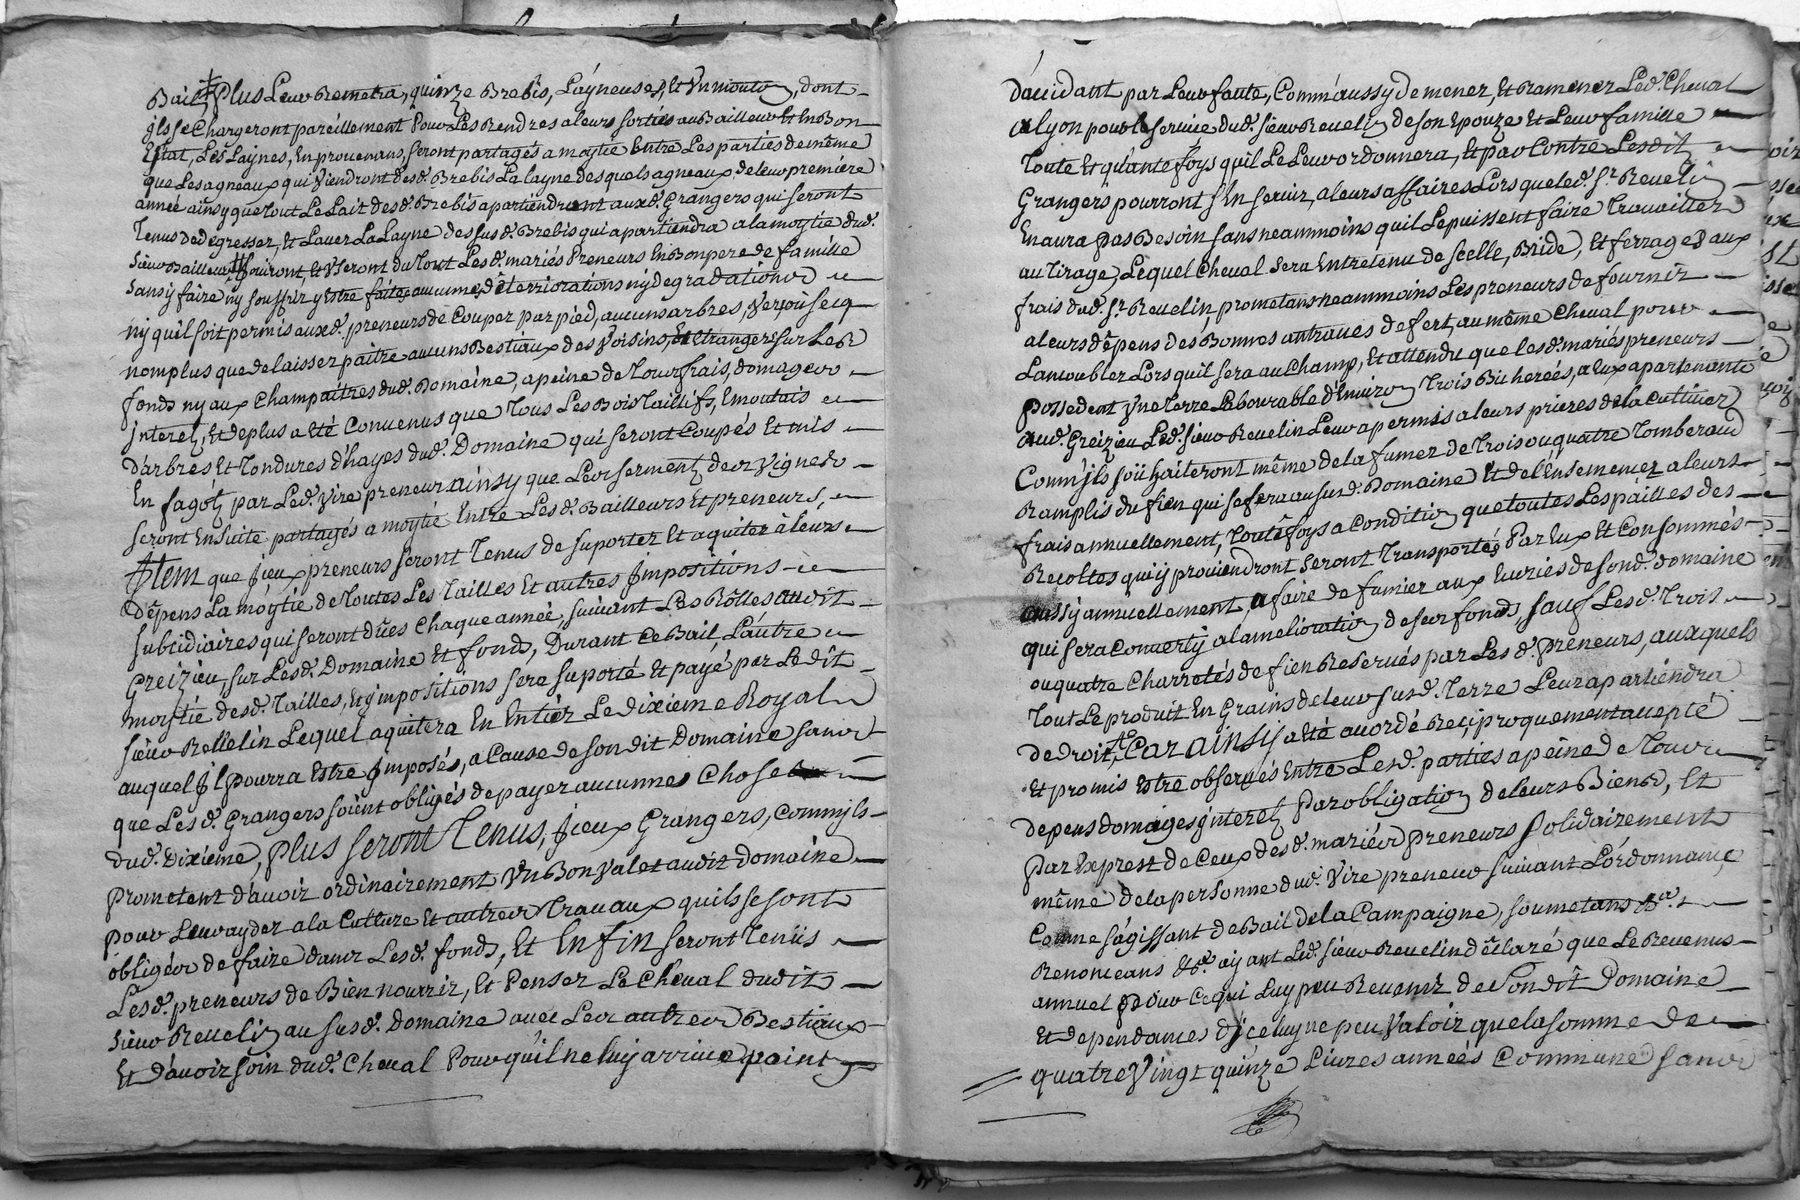 Bail, Plus Leur Remetra, quinze Brebis, Layneuses, Et Un mouto, dont
ilsse Chargeront pareillement Pour Les Rendres a leurs sorties au Bailleur Et En Bon
Estat, Les Laynes, En prouenans, seront partagés a moytie Entre Les parties de même
que Les agneaux qui Viendront desd. Brebis La layne desquels agneaux de leur premiére
année ainsy que tout Le Lait desd. Brebis apartiendront auxd. Grangers qui seront
Tenus de degresser, Et Lauer La Layne des susd. Brebis qui apartiendra a la moytie dud.
Sieur Bailleur, Jouiront, Et Vseront du tout Lesd. mariés Preneurs En Bon pere de famille
sans y faire ny souffrir y Estre faite, aucunes, déterriorations ny degradations
ny quil soit permis auxd. preneurs de Couper par pied, aucuns arbres, Vers ou secq
nomplus que de laisser paitre aucuns Bestiaux des Voisins, Et Etrangers sur Les
fonds ny aux Champaitres dud. Domaine, a peine de tous frais, domages
jnterets, Et de plus a Eté Conuenus que tous Les Bois taillifs, Emoutais
d'arbres Et tondures d'hayes dud. Domaine qui seront Coupés Et mis
En fagots par Led. Vire preneur ainsy que Les serments des Vignes
seront Ensuite partagés a moytié Entre Lesd. Bailleurs Et preneurs,
Jtem que jceux preneurs seront tenus de suporter Et aquiter à leurs
dépens La moytie de toutes Les tailles Et autres Jmpositions
subcidiaires qui seront dües Chaque année, suivant Les Rolles audit
Greizieu, sur Lesd. Domaine Et fonds, Durant Ce Bail, L'autre
moytié desd. tailles, Et jmpositions sera suporté Et payé par Ledit
sieur Rellelin Lequel aquitera En Entier Le dixiéme Royal
auquel jl pourra Estre jmposés, a Cause de son dit Domaine sans
que Lesd. Grangers soient obligés de payer aucunnes Chose
dud. Dixiéme, Plus seront Tenus, jceux Grangers, Comm'ils
Prometent d'avoir ordinairement Un Bon Valet audit domaine
pour Leur ayder a la Culture Et autres trauaux quils se sont
obligés de faire dans Lesd. fonds, Et Enfin seront tenüs
Lesd. preneurs de Bien nourrir, Et Penser Le Cheual dudit
sieur Reuelin au susd. Domaine auec Les autres Bestiaux
Et d'auoir soin dud. Cheual Pour qu'il ne luy arriue point
d'accidant par Leur faute, Comm'áussy de mener, Et Ramener Led. Cheual
a Lyon pour le seruice dud. sieur Reuelin de son Epouze Et Leur famille
toute Et quante foys quil Le Leur ordonnera, Et par Contre Lesdit
Grangers pourront s'En seruir a leurs affaires Lors que led. Sr. Reuelin
En aura pas Besoin sans neammoins quil Le puissent faire trauailler
au tirage, Lequel Cheual sera Entretenu de scelle, Bride, Et ferrages aux
frais dud. Sr. Reuelin, prometans neammoins Les preneurs de fournir
a leurs dépens des Bonnes antraues de fert, au même Cheual pour
L'anoubler Lors quil sera au Champ, Et attendu que lesd. mariés preneurs
possedent Vne terre Labourable d'Enuiron trois Bicherées, a Eux apartenante
aud. Greizieu Led. sieur Reuelin Leur a permis a leurs prieres de la Cultiuer
Comm'ils soühaiteront même de la fumer de trois ou quatre tomberaud
Ramplis du fien qui se fera au susd. Domaine Et de l'Ensemencer a leurs
frais annuellement, toutefoys a Condition que toutes Les pailles des
Recoltes qui y prouiendront seront transportés Par Eux Et Consommés
aussy annuellement, a faire de fumier aux Ecuries de sond. domaine
qui sera Conuerty a l'amelioration de ses fonds, sauf Lesd. trois
ou quatre Charretés de fien Reserués par Lesd. Preneurs, auxquels
tout Le produit En Grains de leur susd. terre Leur apartiendra
de droit, Car ainsy a Eté acordé Reçiproquement accepté
Et promis Estre obserués Entre Lesd. parties a peine de tous
depens domages jnterets Par obligation de leurs Biens, Et
Par Exprest de Ceux desd. mariés preneurs solidairement
même de la personne dud. Vire preneur suiuant L'ordonnance,
Comme s'agissant de Bail de la Campaigne, soumetans &a.
Renonceans &a. ayant Led. sieur Reuelin déclaré que Le Reuenus
annuel Pour Ce qui Luy peu Reuenir de sondit Domaine
Et dependances d'jceluy ne peu Valoir que la somme de
quatre Vingt quinze Liures années Commune sans